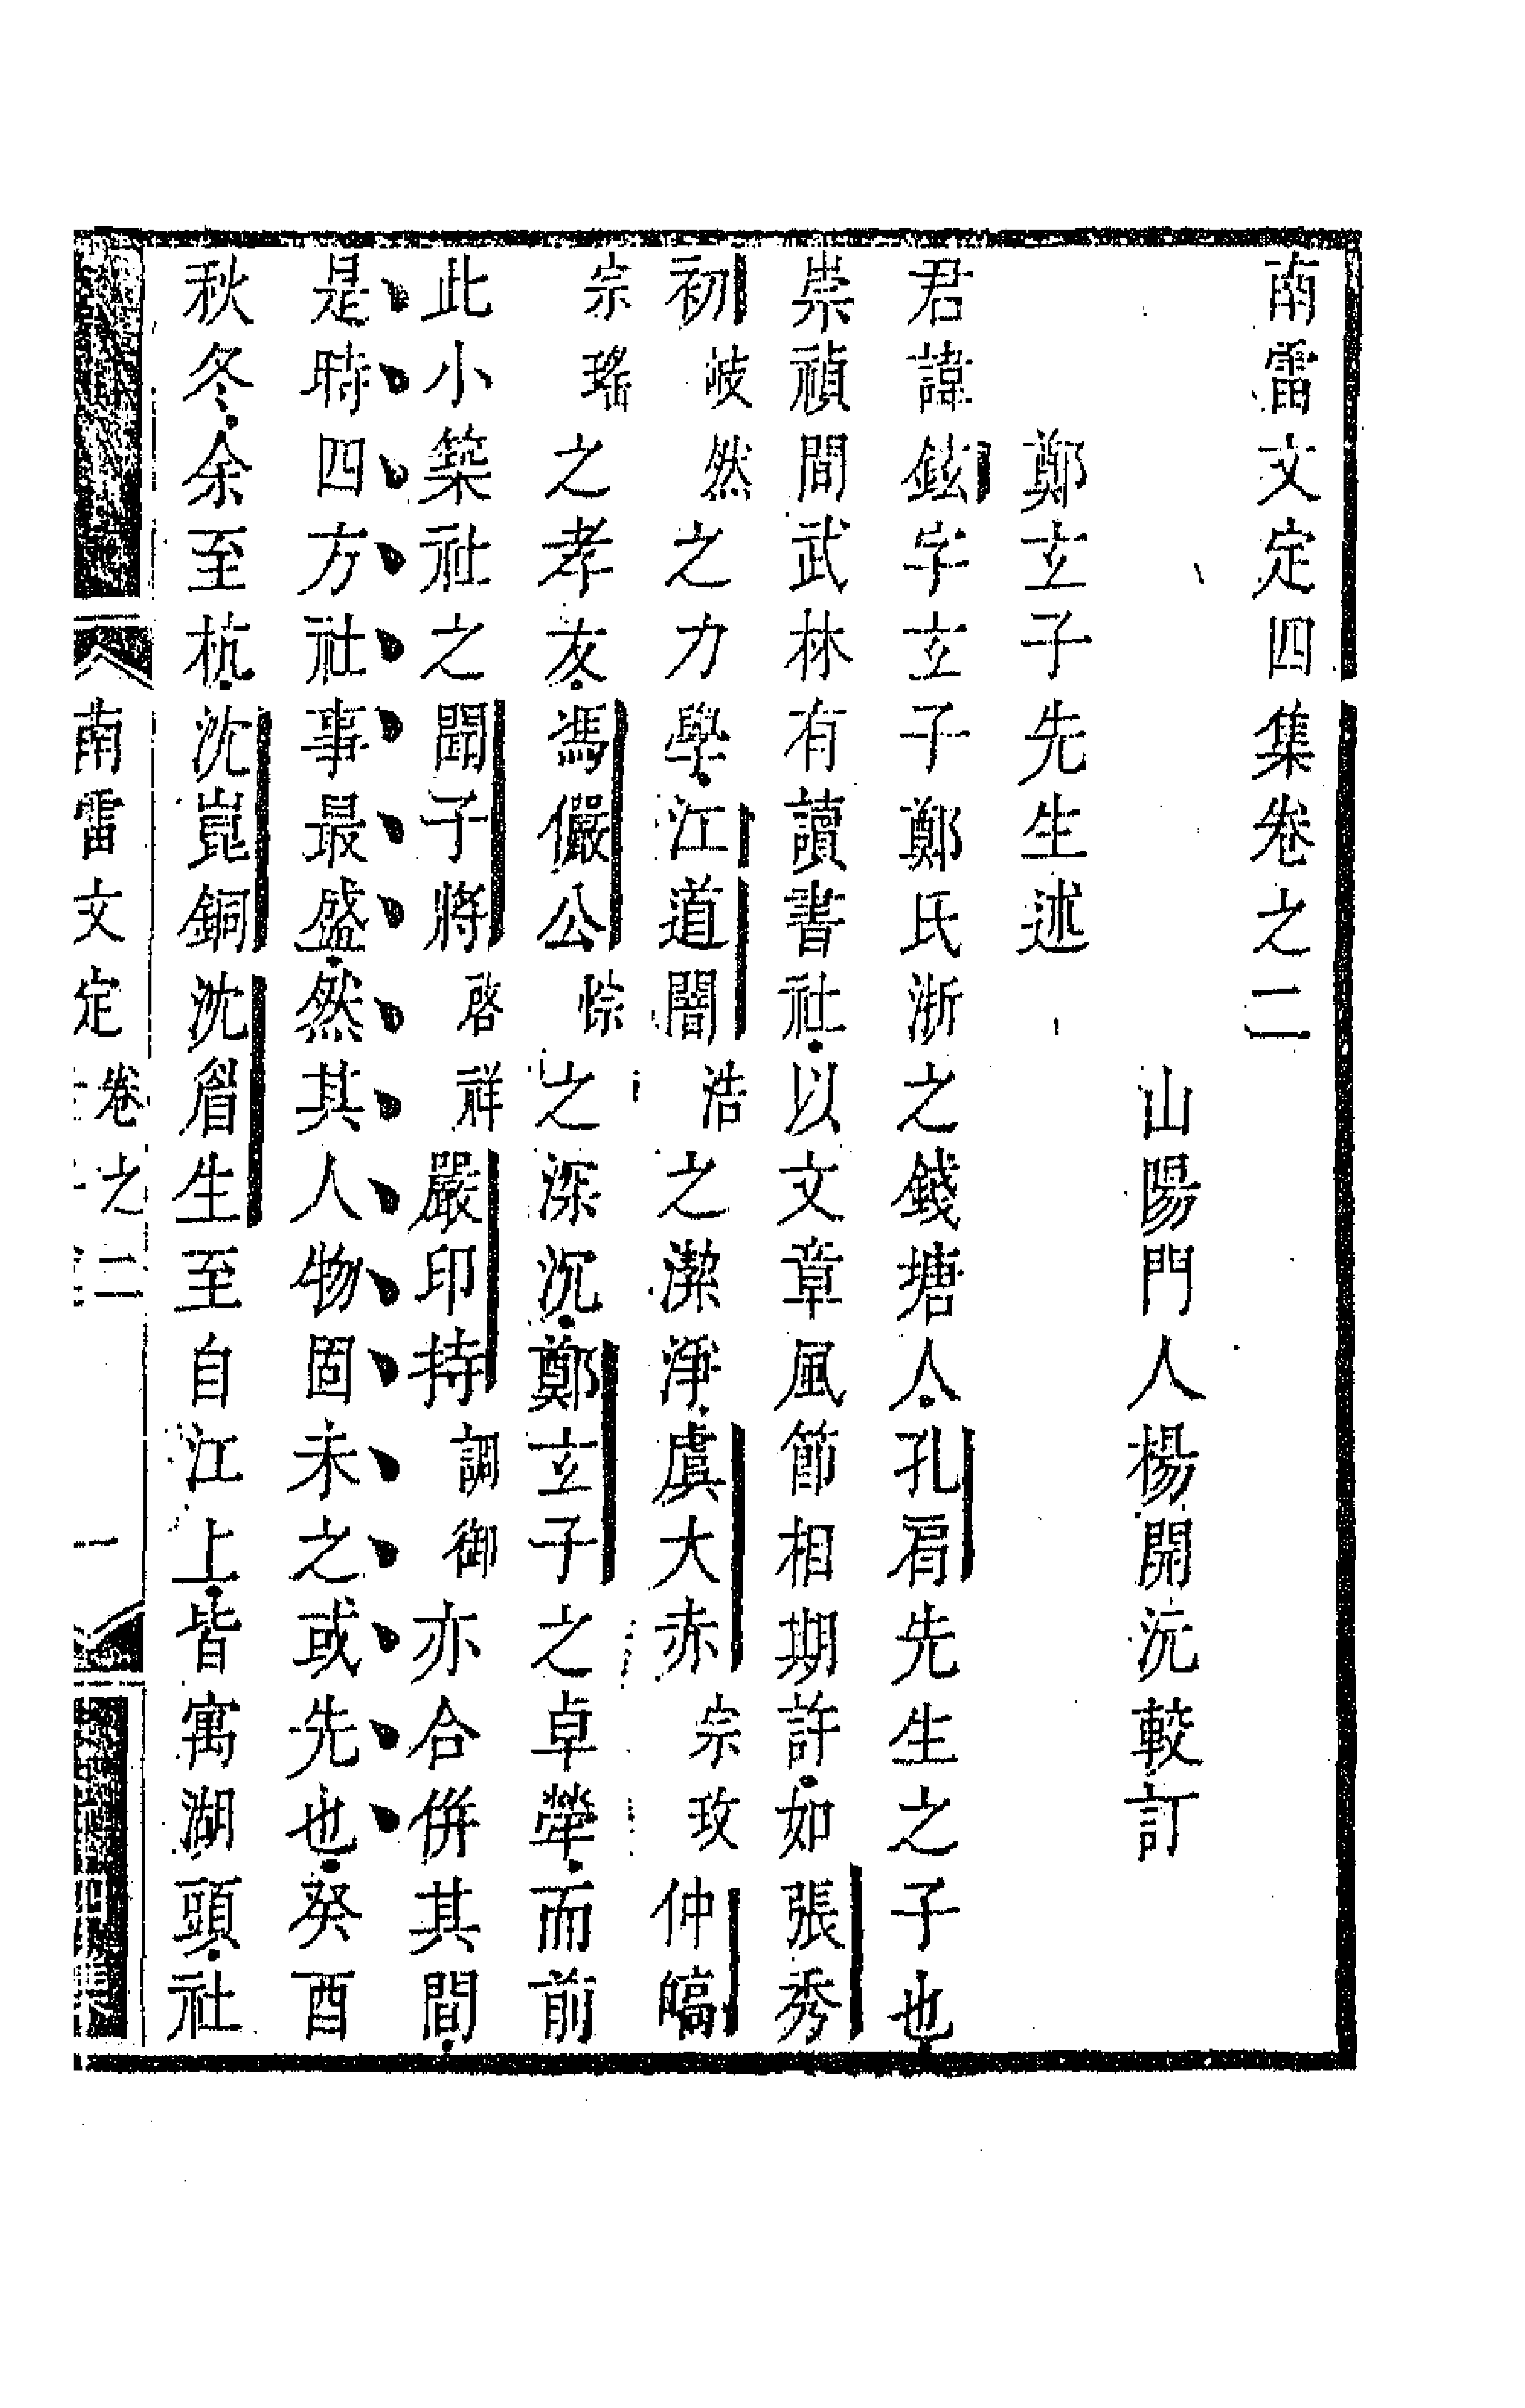 南雷文定四集卷之二
山陽門人楊開沅較訂
鄭玄子先生述
君諱鉉字玄子鄭氏浙之錢塘人孔肩先生之子也
崇禎間武林有讀書社以文章風節相期許如張秀
初岐然之力學江道闇浩之潔淨虞大赤宗玫仲皜
宗瑤之孝友馮儼公悰之深沉鄭玄子之卓犖而前
此小築社之聞子將啓祥嚴印持調御亦合併其間
是時四方社事最盛然其人物固未之或先也癸酉
秋冬余至杭沈崑銅沈眉生至自江上皆寓湖頭社
南雷文定 卷之二 一